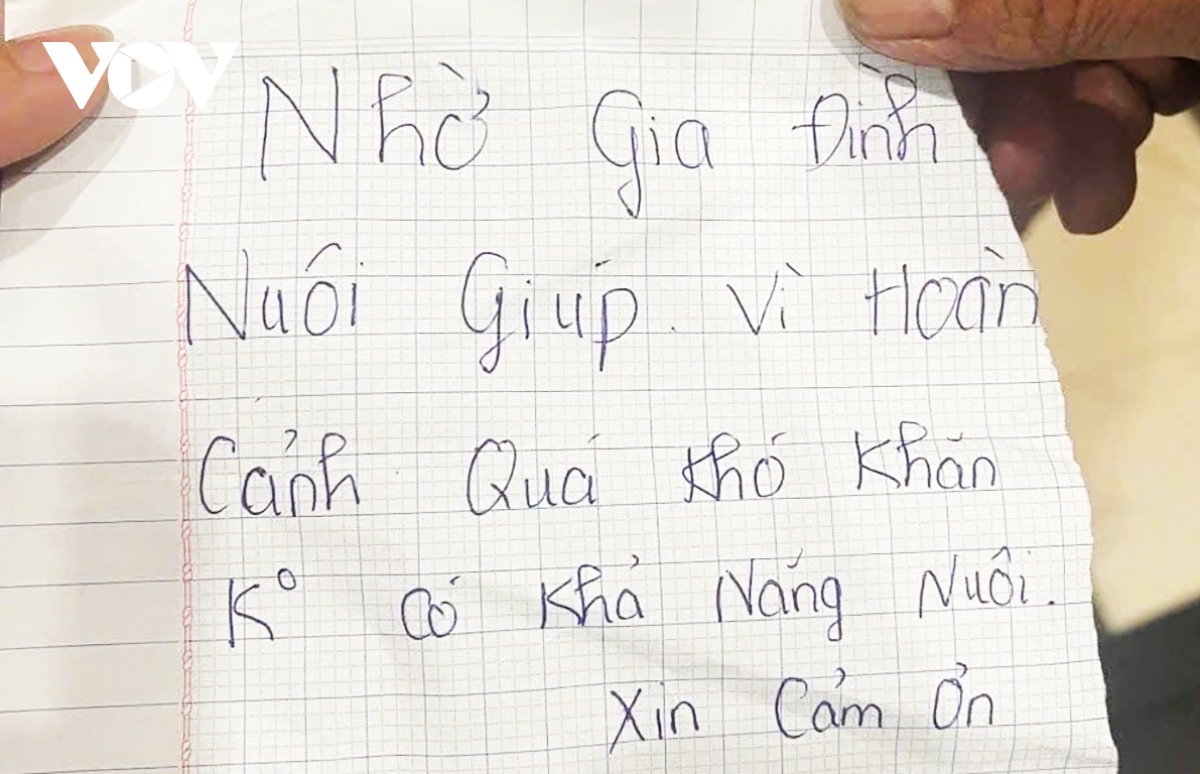 VOV
Nhờ Gia Đình
Nuôi Giúp. Vì Hoàn
Cảnh Quá Khó Khăn
K° Có Khả Năng Nuôi.
Xin Cảm Ơn